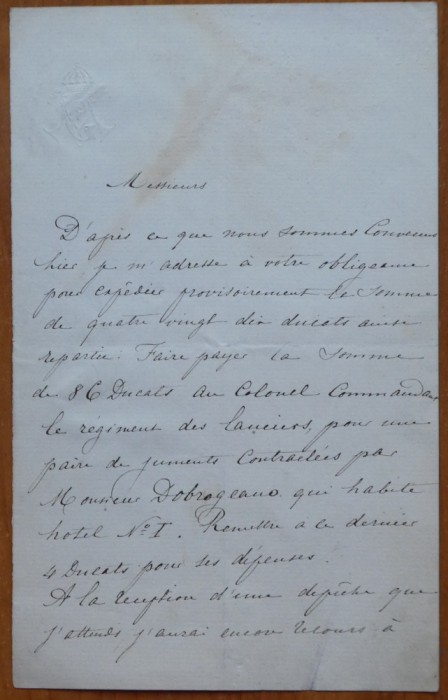 Messieurs
D'après ce que nous sommes convenus
hier, je m'adresse à votre obligeance
pour expédier provisoirement la somme
de quatre vingt dix ducats ainsi
repartie: Faire payer la somme
de 86 Ducats au Colonel Commandant
le régiment des lanciers, pour une
paire de juments contractées par
Monsieur Dobrogeano qui habite
hotel No. I. Remettre a ce dernier
4 Ducats pour ses dépenses.
A la reception d'une depêche que
j'attends j'aurai encore recours à